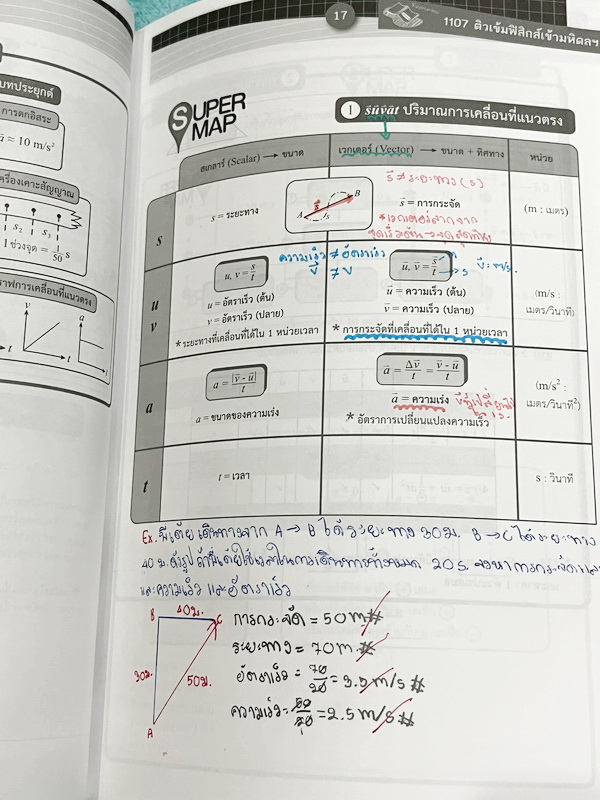 17
1107 ติวเข้มฟิสิกส์เข้ามหิดลฯ
บทประยุกต์
การตกอิสระ
a ≈ 10 m/s²
เครื่องเคาะสัญญาณ
s₂ s₃
1 ช่วงจุด = 1/50 s
ราฟการเคลื่อนที่แนวตรง
v a
t t
SUPER MAP
1 suvat ปริมาณการเคลื่อนที่แนวตรง
สเกลาร์ (Scalar) → ขนาด
เวกเตอร์ (Vector) → ขนาด + ทิศทาง
หน่วย
s
s = ระยะทาง
A s B
s⃗ ≠ ระยะทาง (s)
s⃗ = การกระจัด
*เวกเตอร์ลากจาก
จุดเริ่มต้น → จุดสุดท้าย
(m : เมตร)
u
v
ความเร็ว ≠ อัตราเร็ว
u, v = s/t
u = อัตราเร็ว (ต้น)
v = อัตราเร็ว (ปลาย)
* ระยะทางที่เคลื่อนที่ได้ใน 1 หน่วยเวลา
u⃗, v⃗ = s⃗/t
u⃗ = ความเร็ว (ต้น)
v⃗ = ความเร็ว (ปลาย)
* การกระจัดที่เคลื่อนที่ได้ใน 1 หน่วยเวลา
(m/s :
เมตร/วินาที)
a
a = |v⃗ - u⃗|/t
a = ขนาดของความเร่ง
a⃗ = Δv⃗/t = (v⃗ - u⃗)/t
a⃗ = ความเร่ง
* อัตราการเปลี่ยนแปลงความเร็ว
(m/s² :
เมตร/วินาที²)
t
t = เวลา
s : วินาที
Ex. พี่เต้ย เดินทางจาก A → B ได้ระยะทาง 30 ม. B → C ได้ระยะทาง
40 ม. ดังรูป ถ้าพี่เต้ยใช้เวลาในการเดินทางทั้งหมด 20 s. จงหาการกระจัด
และความเร็ว และอัตราเร็ว
B 40 ม. C
30 ม. 50 ม.
A
การกระจัด = 50 m #
ระยะทาง = 70 m #
อัตราเร็ว = 70/20 = 3.5 m/s #
ความเร็ว = 50/20 = 2.5 m/s #